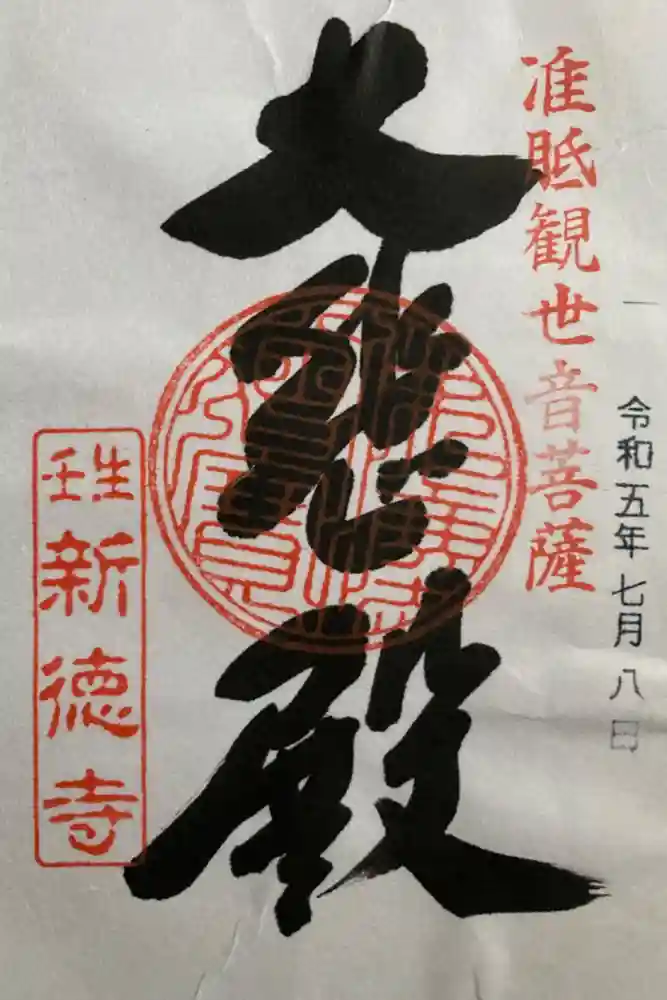 令和五年七月八日
准胝観世音菩薩
大悲殿
壬生
新徳寺